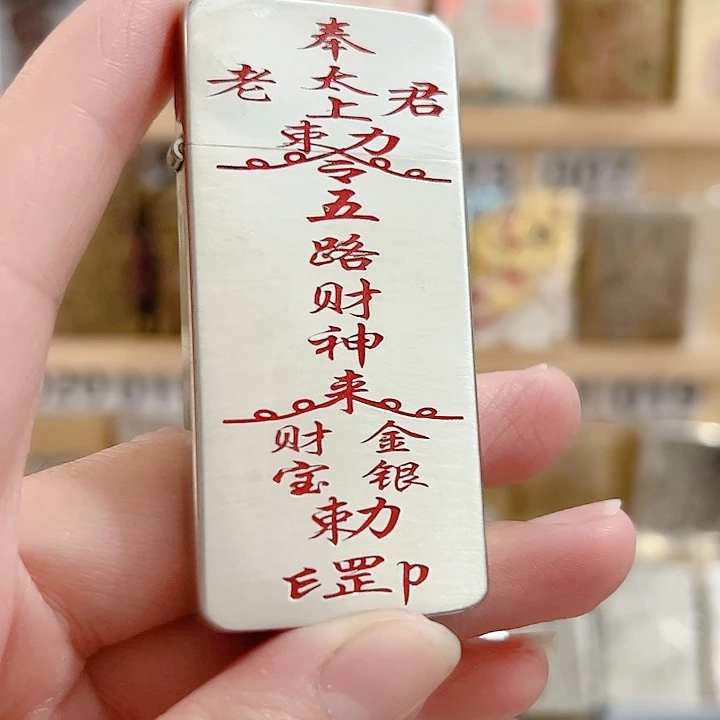 奉
老太君
上
勅
令
五
路
财
神
来
财 金
宝 银
勅
罡